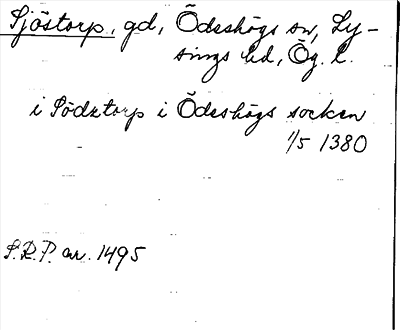 Sjöstorp, gd, Ödeshögs sn, Ly-
sings hd, Ög. l.
i Södztorp i Ödeshögs socken
1/5 1380
S.R.P. nr. 1495